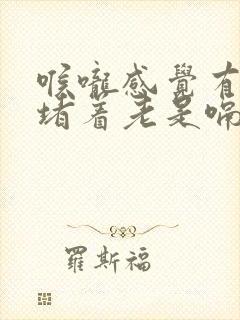 喉嚨感覺有
堵着老是嗝
羅斯福